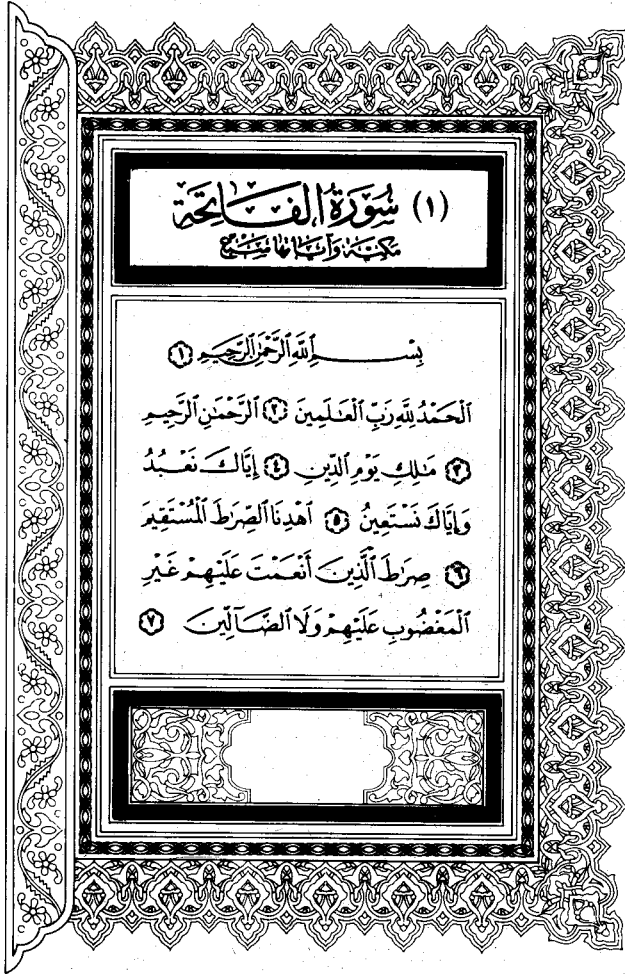 (١) سُورَةُ الفَاتِحَة
مَكيَّة وَآيَاتُهَا سَبْع
بِسْمِ ٱللَّهِ ٱلرَّحْمَٰنِ ٱلرَّحِيمِ ١
ٱلْحَمْدُ لِلَّهِ رَبِّ ٱلْعَٰلَمِينَ ٢ ٱلرَّحْمَٰنِ ٱلرَّحِيمِ
٣ مَٰلِكِ يَوْمِ ٱلدِّينِ ٤ إِيَّاكَ نَعْبُدُ
وَإِيَّاكَ نَسْتَعِينُ ٥ ٱهْدِنَا ٱلصِّرَٰطَ ٱلْمُسْتَقِيمَ
٦ صِرَٰطَ ٱلَّذِينَ أَنْعَمْتَ عَلَيْهِمْ غَيْرِ
ٱلْمَغْضُوبِ عَلَيْهِمْ وَلَا ٱلضَّآلِّينَ ٧